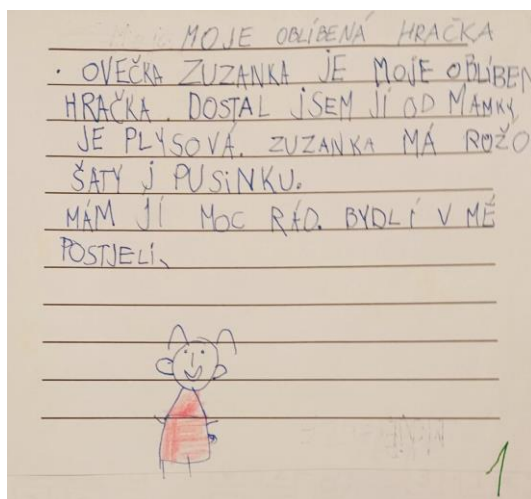 MOJE OBLÍBENÁ HRAČKA
· OVEČKA ZUZANKA JE MOJE OBLÍBEN
HRAČKA. DOSTAL JSEM JÍ OD MAMKY
JE PLYSOVÁ. ZUZANKA MÁ ROŽO
ŠATY J PUSINKU.
MÁM JÍ MOC RÁD. BYDLÍ V MÉ
POSTJELI.
1